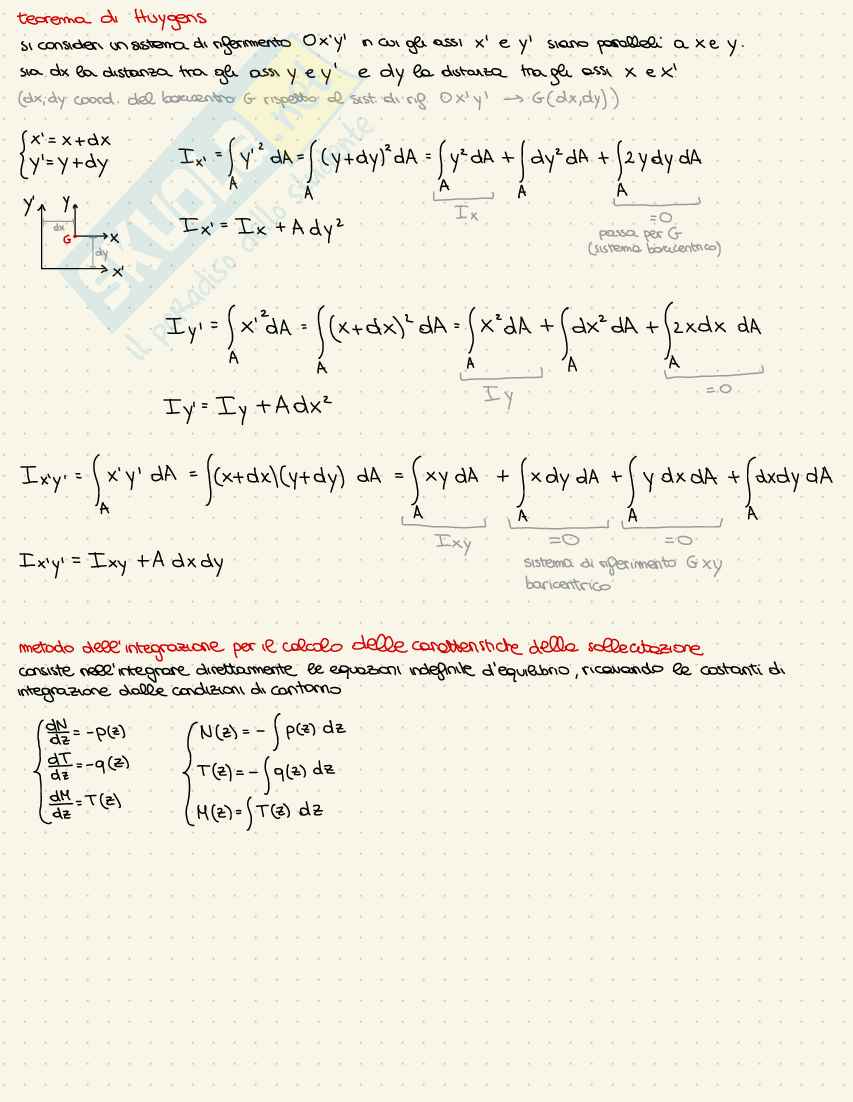 teorema di Huygens
si consideri un sistema di riferimento Ox'y' in cui gli assi x' e y' siano paralleli a x e y.
sia dx la distanza tra gli assi y e y' e dy la distanza tra gli assi x e x'
(dx,dy coord. del baricentro G rispetto al sist. di rif. Ox'y' → G(dx,dy))
{x' = x + dx
{y' = y + dy
I_x' = ∫_A y'² dA = ∫_A (y+dy)² dA = ∫_A y² dA + ∫_A dy² dA + ∫_A 2y dy dA
Ix
=0
passa per G
(sistema baricentrico)
I_x' = Ix + A dy²
y' y
dx
G x
dy
x'
I_y' = ∫_A x'² dA = ∫_A (x+dx)² dA = ∫_A x² dA + ∫_A dx² dA + ∫_A 2xdx dA
Iy
=0
I_y' = Iy + A dx²
I_x'y' = ∫_A x'y' dA = ∫(x+dx)(y+dy) dA = ∫_A xy dA + ∫_A x dy dA + ∫_A y dx dA + ∫_A dxdy dA
Ixy
=0
=0
sistema di riferimento Gxy
baricentrico
I_x'y' = Ixy + A dx dy
metodo dell'integrazione per il calcolo delle caratteristiche della sollecitazione
consiste nell'integrare direttamente le equazioni indefinite d'equilibrio, ricavando le costanti di
integrazione dalle condizioni di contorno
{dN/dz = -p(z) {N(z) = - ∫ p(z) dz
dT/dz = -q(z) T(z) = - ∫ q(z) dz
dM/dz = T(z) M(z) = ∫ T(z) dz
SKUOLA.net
il paradiso dello studente